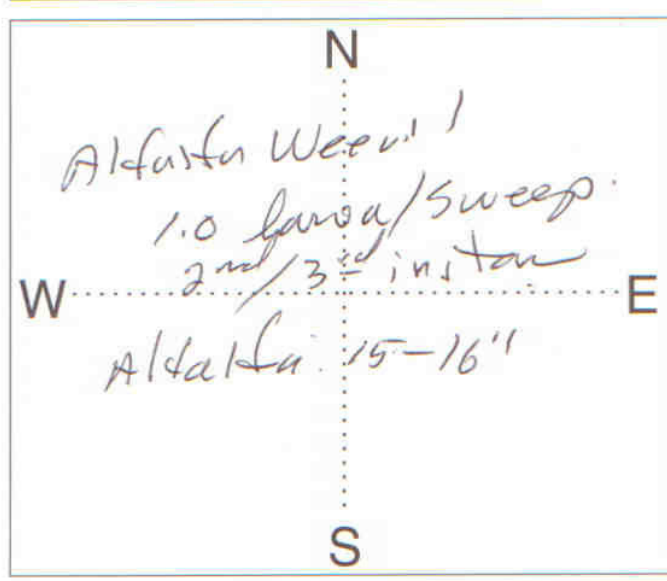 N
Alfalfa Weevil
1.0 larva/sweep.
2nd/3rd instar
W E
Alfalfa: 15-16"
S